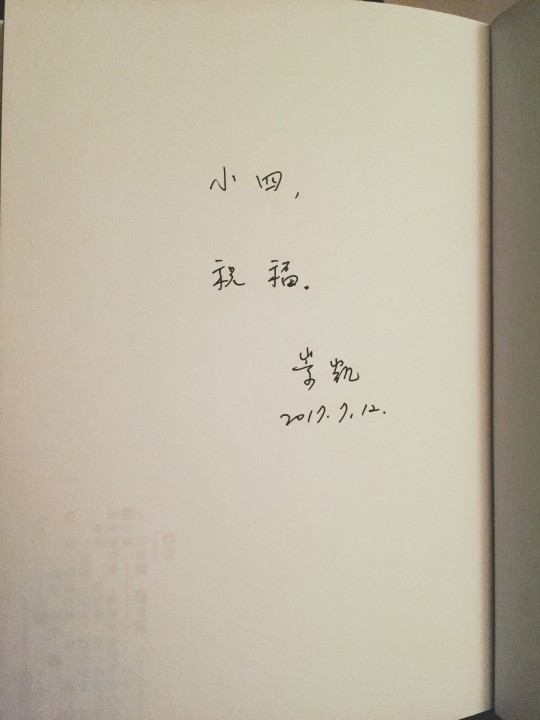 小四，
祝福。
崇凯
2017.7.12.